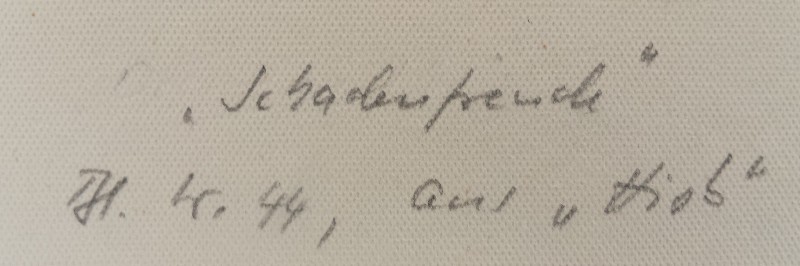 „Schadenfreude“
Bl. Nr. 44, aus „Hiob“